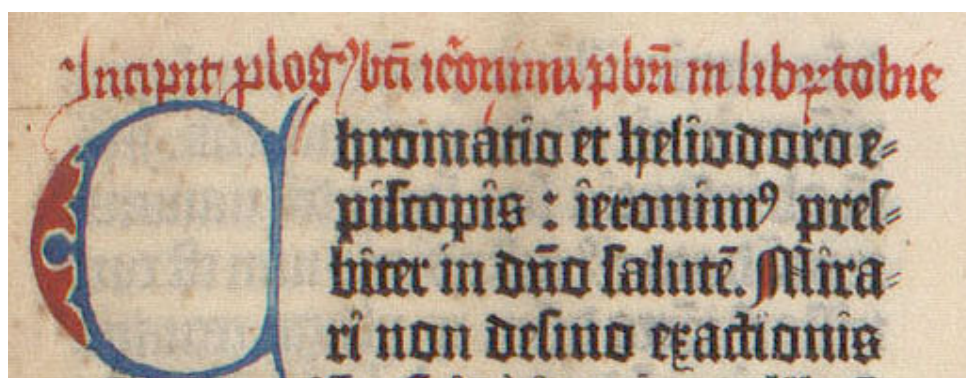 Incipit ꝓlogꝰ bti ieronimi pbri in libꝝ tobie
Chromatio et heliodoro e-
piscopis : ieronimꝰ pres-
biter in dño salutē. Mira-
ri non desino exactionis